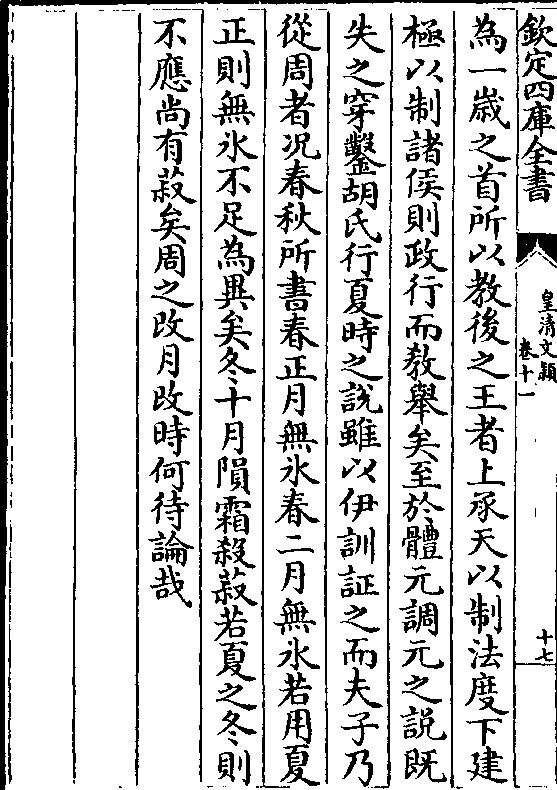 欽定四庫全書
皇清文穎
卷十一
十七
為一歲之首所以教後之王者上承天以制法度下建
極以制諸侯則政行而教舉矣至於體元調元之說既
失之穿鑿胡氏行夏時之說雖以伊訓証之而夫子乃
從周者况春秋所書春正月無氷春二月無氷若用夏
正則無氷不足為異矣冬十月隕霜殺菽若夏之冬則
不應尚有菽矣周之改月改時何待論哉